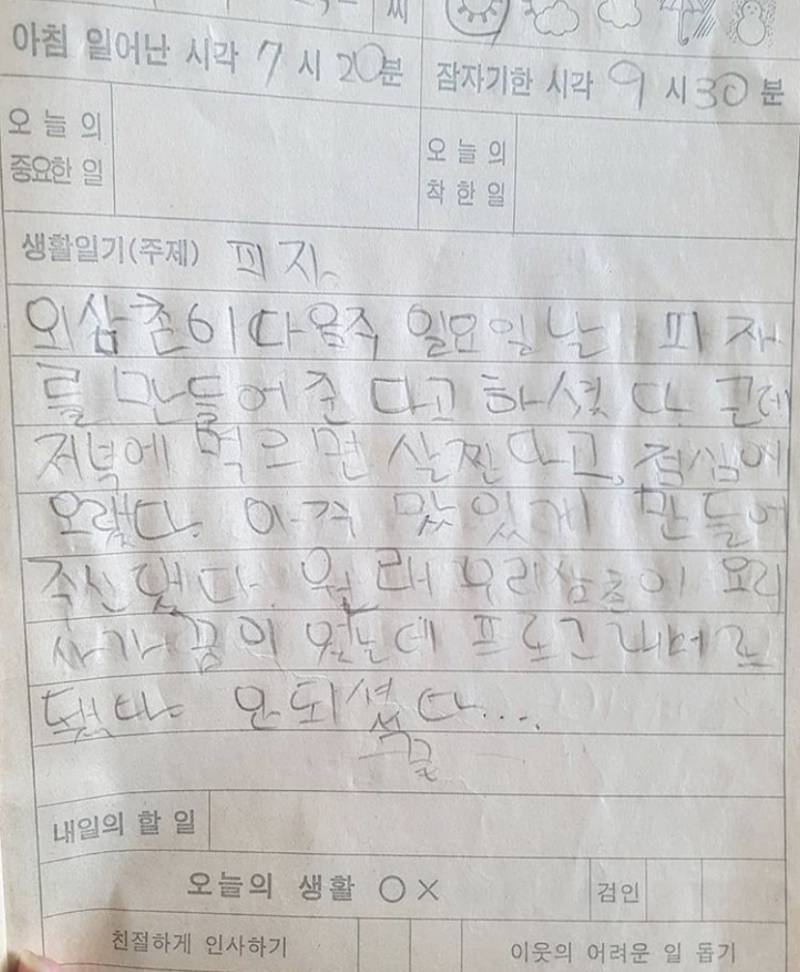 씨
아침 일어난 시각 7 시 20분 잠자기한 시각 9 시 30 분
오 늘 의
중요한 일
오 늘 의
착 한 일
생활일기(주제) 피자
외삼촌이 다음주 일요일날 피자
를 만들어 준 다고 하셨다. 근데
저녁에 먹으면 살찐다고, 점심에
오랬다. 아주 맜있게 만들어
주신댔다. 원래 우리삼촌이 요리
사가 꿈이 였는데 프로그래머로
됐다. 안되셨다....
내일의 할 일
오늘의 생활 ○ × 검인
친절하게 인사하기 이웃의 어려운 일 돕기